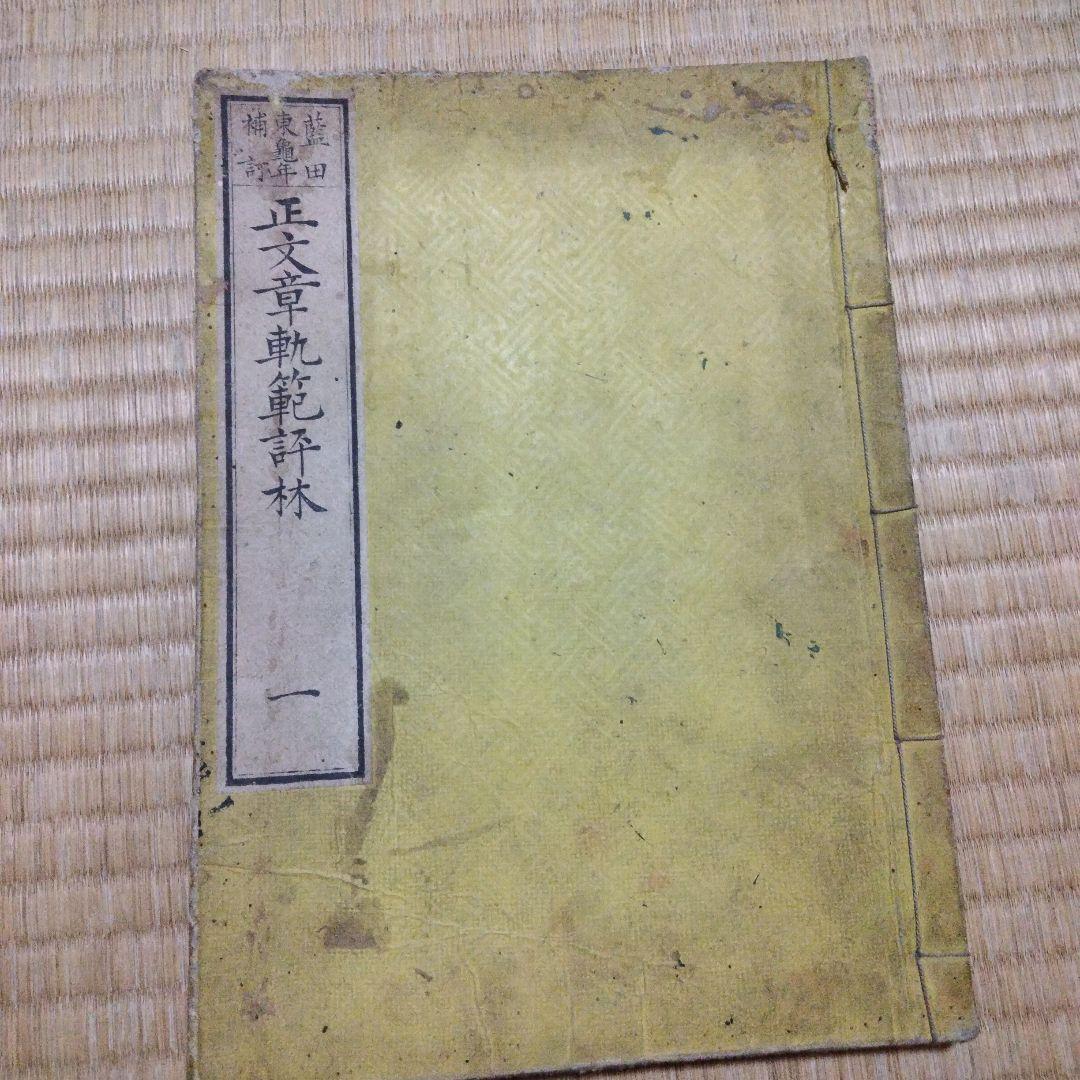 藍田
東龜年
補訂
正文章軌範評林
一